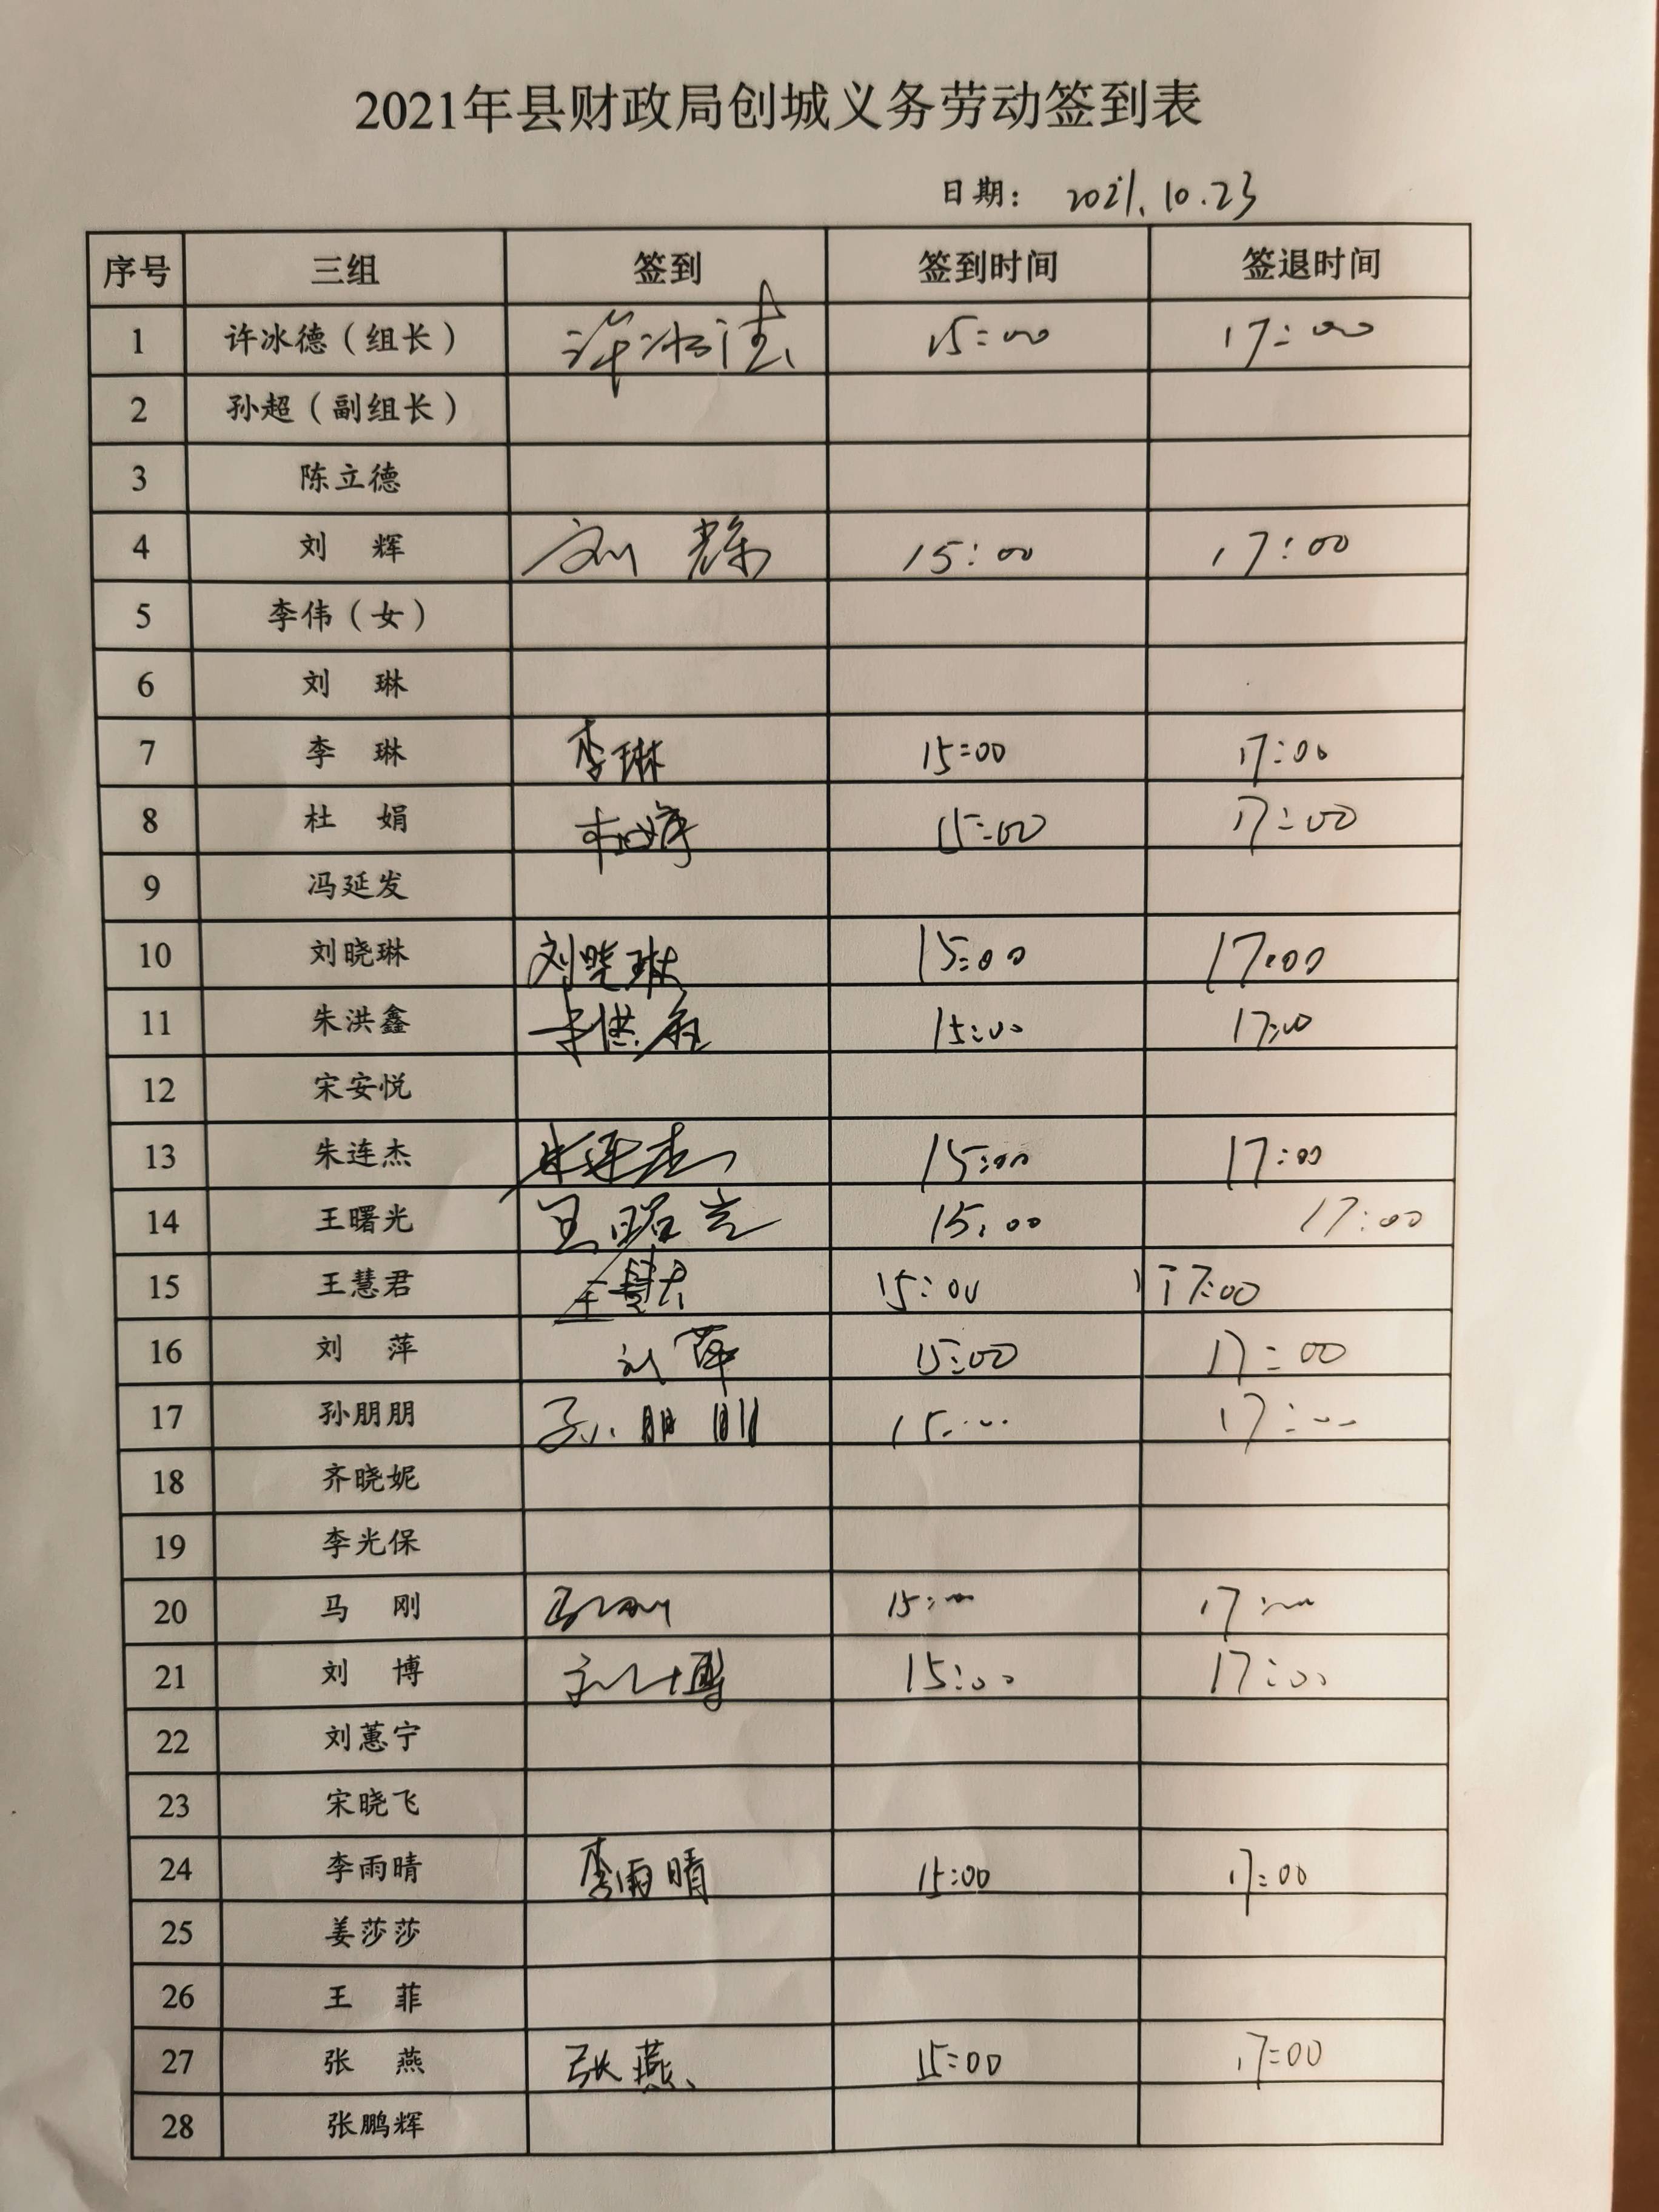 2021年县财政局创城义务劳动签到表
日期： 2021.10.23
序号 三组 签到 签到时间 签退时间
1 许冰德（组长） 许冰德 15:00 17:00
2 孙超（副组长）
3 陈立德
4 刘 辉 刘 辉 15:00 17:00
5 李伟（女）
6 刘 琳
7 李 琳 李琳 15:00 17:00
8 杜 娟 杜娟 15:00 17:00
9 冯延发
10 刘晓琳 刘晓琳 15:00 17:00
11 朱洪鑫 朱洪鑫 15:00 17:00
12 宋安悦
13 朱连杰 朱连杰 15:00 17:00
14 王曙光 王曙光 15:00 17:00
15 王慧君 王慧君 15:00 17:00
16 刘 萍 刘萍 15:00 17:00
17 孙朋朋 孙朋朋 15:00 17:00
18 齐晓妮
19 李光保
20 马 刚 马刚 15:00 17:00
21 刘 博 刘博 15:00 17:00
22 刘蕙宁
23 宋晓飞
24 李雨晴 李雨晴 15:00 17:00
25 姜莎莎
26 王 菲
27 张 燕 张燕 15:00 17:00
28 张鹏辉